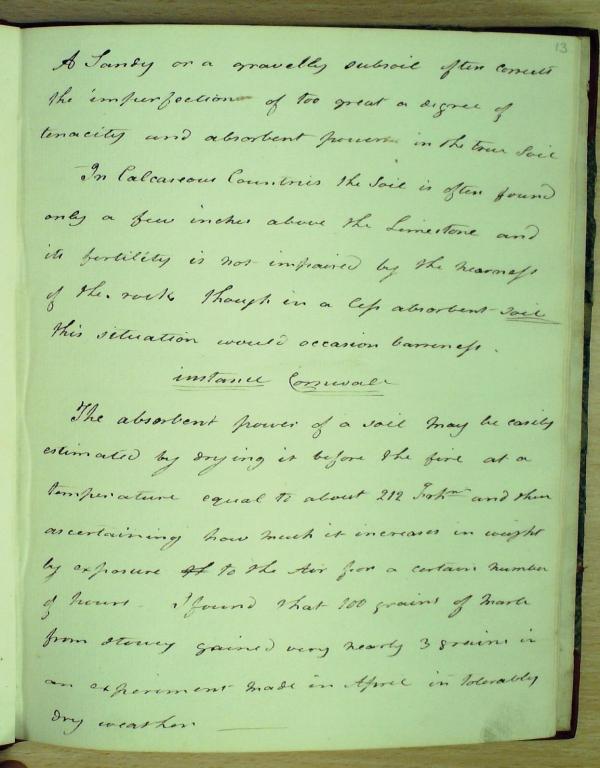 13
A Sandy or a gravelly subsoil often corrects
the imperfection of too great a degree of
tenacity and absorbent power in the true Soil
In Calcareous Countries the Soil is often found
only a few inches above the Limestone and
its fertility is not impaired by the nearness
of the rock though in a less absorbent soil
this situation would occasion barreness.
instance Cornwall
The absorbent power of a soil may be easily
estimated by drying it before the fire at a
temperature equal to about 212 and then
ascertaining how much it increases in weight
by exposure to the Air for a certain number
of hours. I found that 100 grains of
from gained very nearly 3 grains in
an experiment made in April in tolerably
dry weather